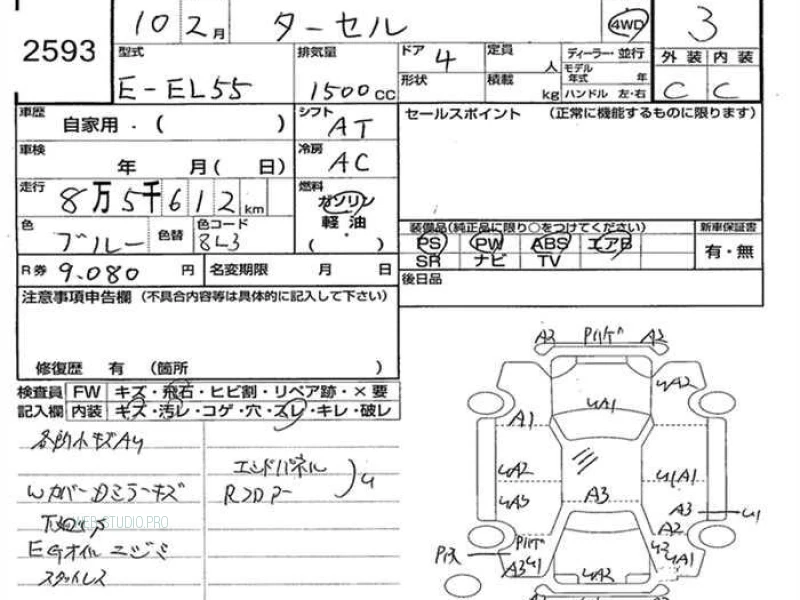 10 2月 ターセル 4WD 3
2593
型式 排気量 ドア 4 定員 人 ディーラー・並行 外装 内装
E-EL55 1500cc 形状 積載 kg モデル年式 年 ハンドル 左・右 C C
車歴 自家用・( ) シフト AT セールスポイント (正常に機能するものに限ります)
車検 年 月( 日) 冷房 AC
走行 8万5千612km 燃料 ガソリン
軽油
( )
色 ブルー 色替 色コード 8L3
装備品(純正品に限り○をつけてください) 新車保証書
PS PW ABS エアB 有・無
SR ナビ TV
R券 9.080円 名変期限 月 日 後日品
注意事項申告欄 (不具合内容等は具体的に記入して下さい)
修復歴 有 (箇所 )
検査員 FW キズ・飛石・ヒビ割・リペア跡・×要
記入欄 内装 キズ・汚レ・コゲ・穴・スレ・キレ・破レ
各所小キズAU
エンドパネル
Rフロアー
WカバーDミラーキズ
WEB-STUDIO PRO
EGオイルニジミ
スタットレス
A2 A2
UA2
UA1
A1
UA2 U1A1
A3
A3 U1
A2
A3U1 UA1
UA2